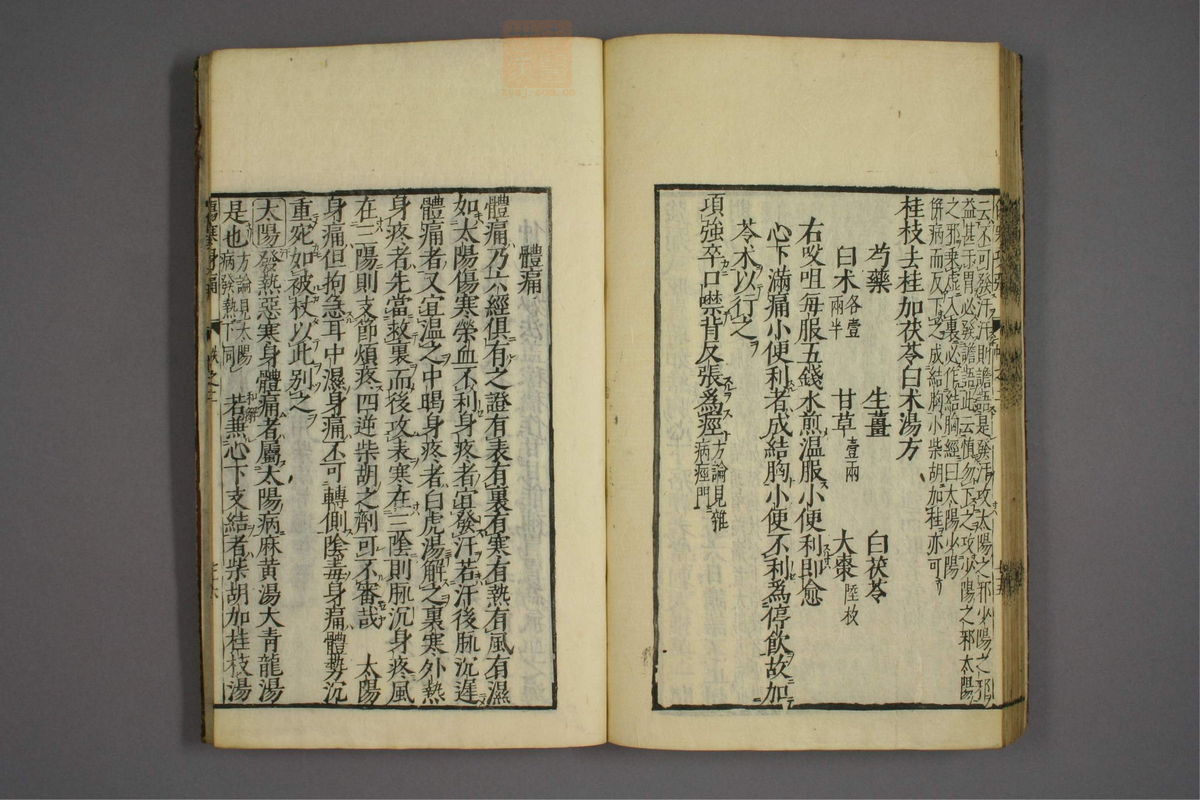 云不可發汗汗則譫語是發汗攻太陽之邪少陽之邪
益甚干胃必發譫語此云慎勿下之攻少陽之邪太陽
之邪乘虛入裏必作結胸經曰太陽少陽
併病而反下之成結胸小柴胡加桂亦可
桂枝去桂加茯苓白术湯方
芍藥 生薑 白茯苓
白术各壹兩半 甘草壹兩 大棗陸枚
右㕮咀每服五錢水煎溫服小便利即愈
心下滿痛小便利者成結胸小便不利爲停飲故加
苓术以行之
項強卒口噤背反張爲痙方論見雜病痙門
體痛
體痛乃六經俱有之證有表有裏有寒有熱有風有濕
如太陽傷寒榮血不利身疼者宜發汗若汗後脉沉遲
體痛者又宜溫之中暍身疼者白虎湯解之裏寒外熱
身疼者先當救裏而後攻表寒在三陰則脉沉身疼風
在三陽則支節煩疼四逆柴胡之劑可不審哉 太陽
身痛但拘急耳中濕身痛不可轉側陰毒身痛體勢沉
重宛如被杖以此別之
太陽發熱惡寒身體痛者屬太陽病麻黄湯大青龍湯
是也方論見太陽病發熱下同 和解 若無心下支結者柴胡加桂枝湯